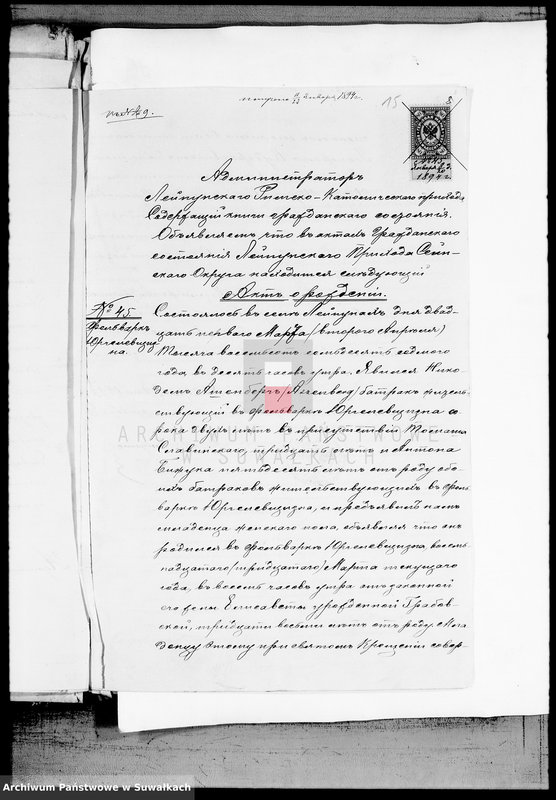 15
8
Января
1894 г.
Администраторъ
Лейпунского Римско-Католического прихода
Содержащій книги гражданского состоянія.
Объявляетъ что въ актахъ Гражданского
состоянія Лейпунского Прихода Сейн-
ского Округа находится слѣдующій
Актъ о рожденіи.
№ 45
Фольваркъ
Юргелевщиз
на.
Состоялось въ селѣ Лейпунахъ дня двад-
цать перваго Марта /второго Апреля/
Тысяча восемьсотъ семьдесятъ седьмого
года, въ десять часовъ утра. Явился Нико-
демъ Ашенбергъ /Aszenberg/ батракъ
ствующій въ фольваркѣ Юргелевщизна
лѣтъ въ присутствіи Томаша
Славинского тридцати лѣтъ и Антона
пятьдесятъ лѣтъ отъ роду обо-
ихъ батраковъ жительствующихъ въ фоль-
варкѣ Юргелевщизна, и предъявилъ намъ
младенца женского пола, объявляя что онъ
родился въ фольваркѣ Юргелевщизна, восем-
надцатаго /тридцатаго/ Марта текущаго
года, въ восемь часовъ утра отъ законной
его жены Елисаветы урожденной Грабов-
ской, тридцати восьми лѣтъ отъ роду. Мла
денцу этому при святомъ Крещеніи совер-
ARCHIWUM PAŃSTWOWE
W SUWAŁKACH
Archiwum Państwowe w Suwałkach